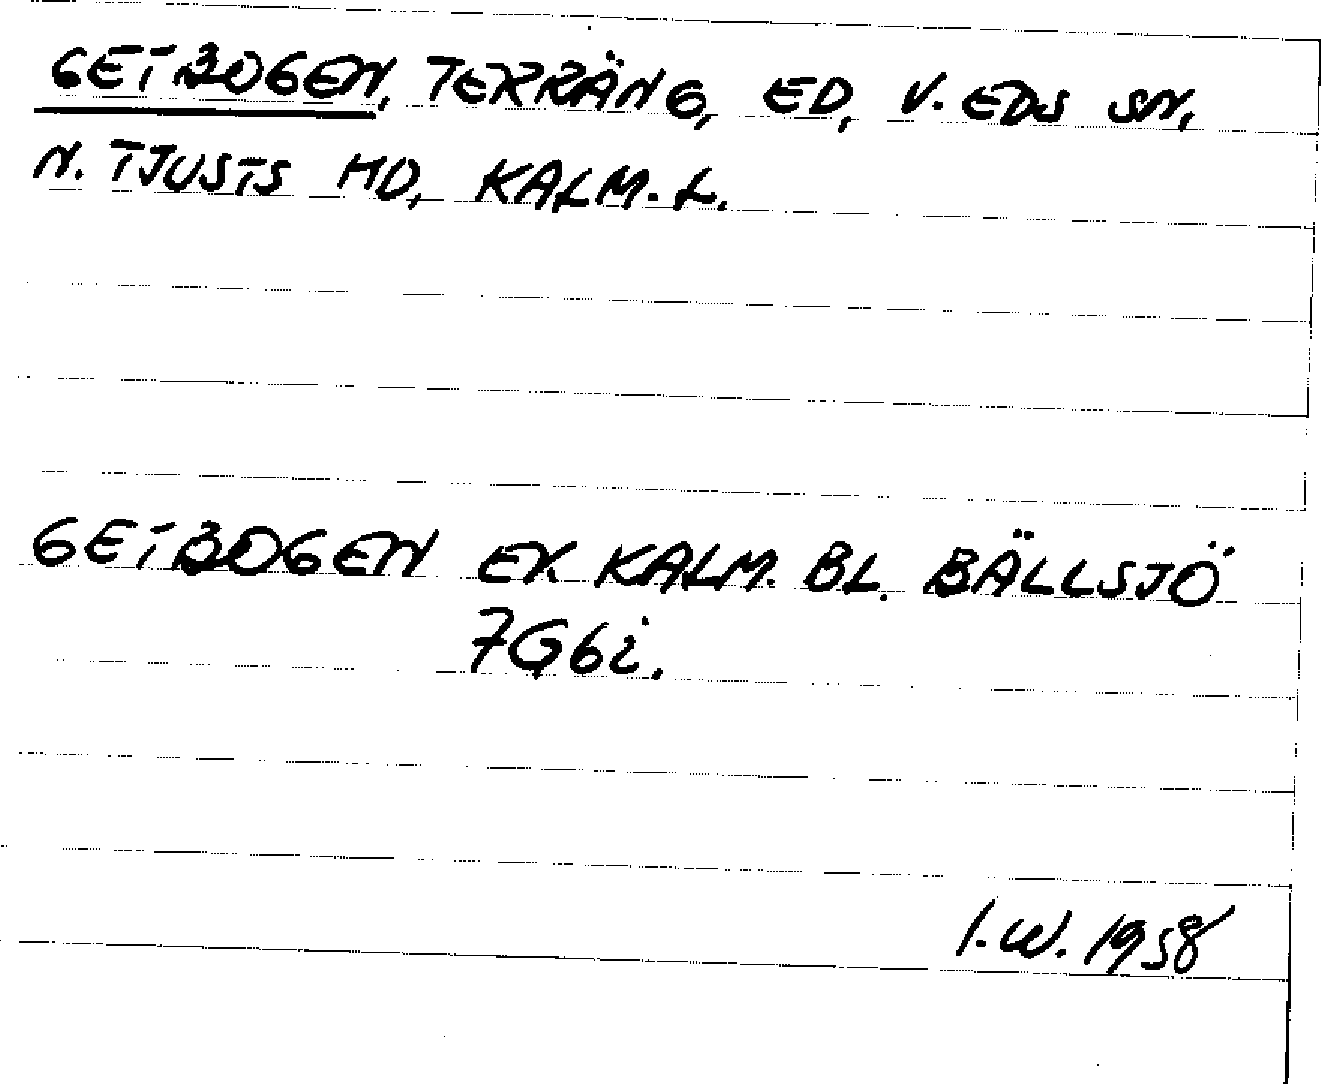 GETBOGEN, TERRÄNG, ED, V. EDS SN,
N. TJUSTS HD, KALM. L.
GETBOGEN EK. KALM. BL. BÄLLSJÖ
7G6i.
I.W. 1958